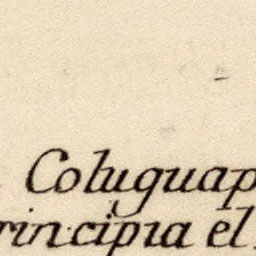 Coluguap
rincipia el